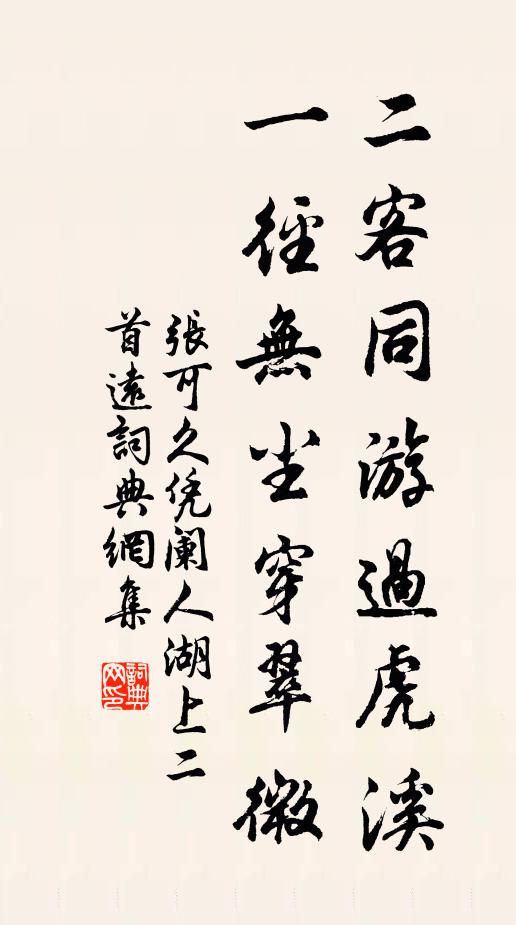 二客同游過虎溪
一徑無尘穿翠微
張可久凭阑人湖上二
首遠詞典網集
詞典网印